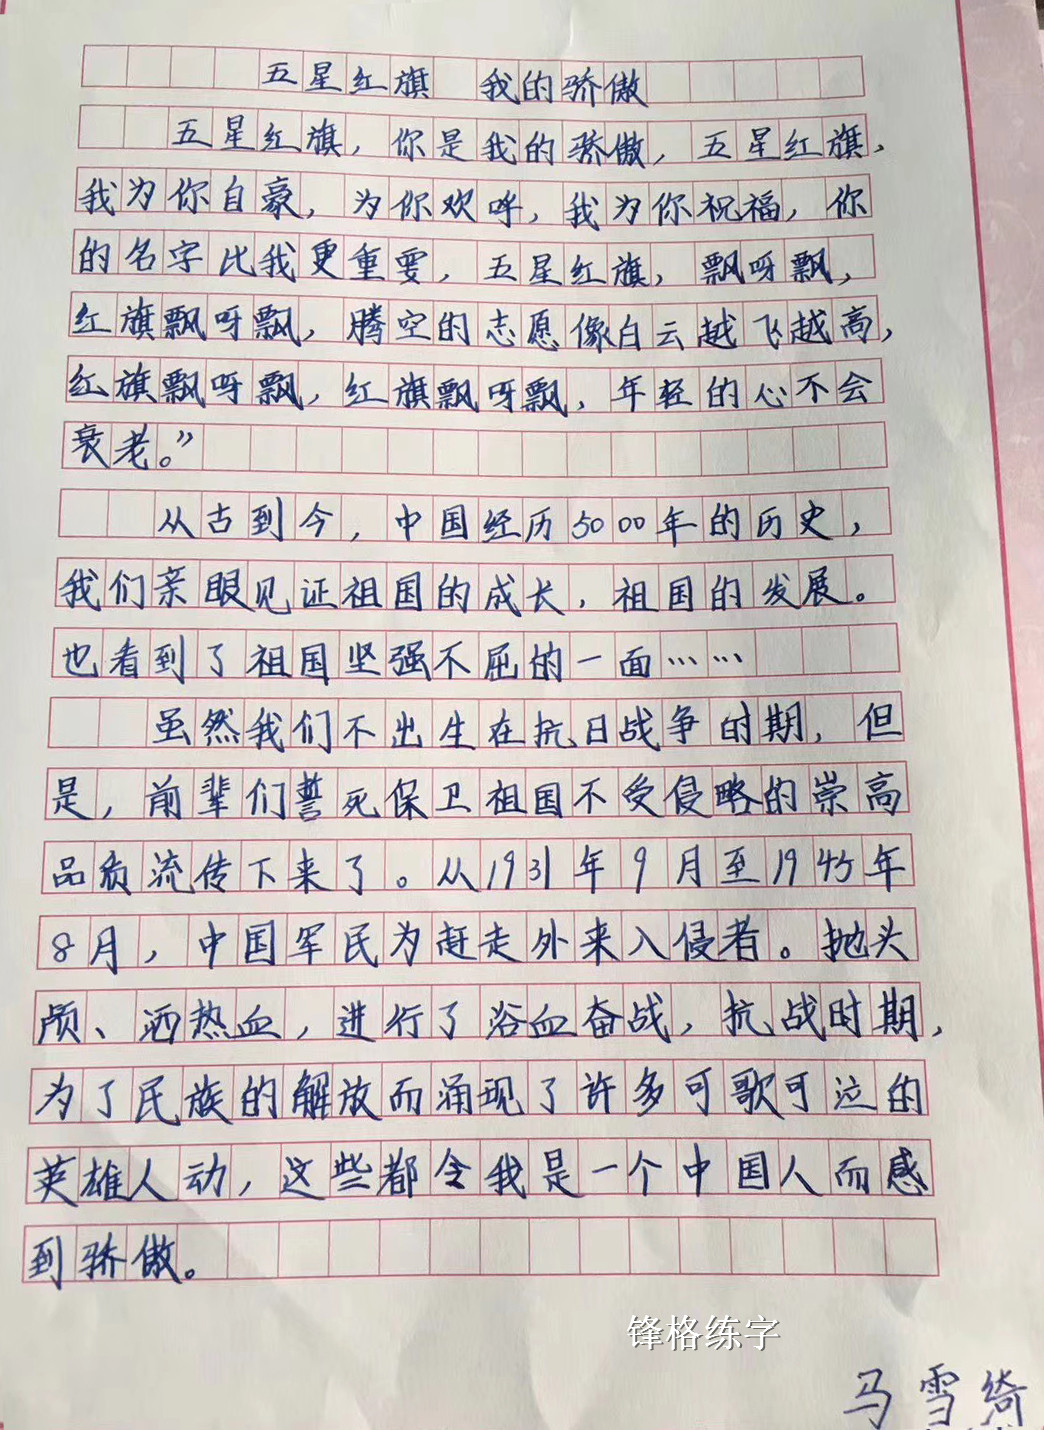 五星红旗 我的骄傲
五星红旗，你是我的骄傲，五星红旗，
我为你自豪，为你欢呼，我为你祝福，你
的名字比我更重要，五星红旗，飘呀飘，
红旗飘呀飘，腾空的志愿像白云越飞越高，
红旗飘呀飘，红旗飘呀飘，年轻的心不会
衰老。”
从古到今，中国经历5000年的历史，
我们亲眼见证祖国的成长，祖国的发展。
也看到了祖国坚强不屈的一面……
虽然我们不出生在抗日战争时期，但
是，前辈们誓死保卫祖国不受侵略的崇高
品质流传下来了。从1931年9月至1945年
8月，中国军民为赶走外来入侵者。抛头
颅、洒热血，进行了浴血奋战，抗战时期，
为了民族的解放而涌现了许多可歌可泣的
英雄人动，这些都令我是一个中国人而感
到骄傲。
锋格练字
马雪绮